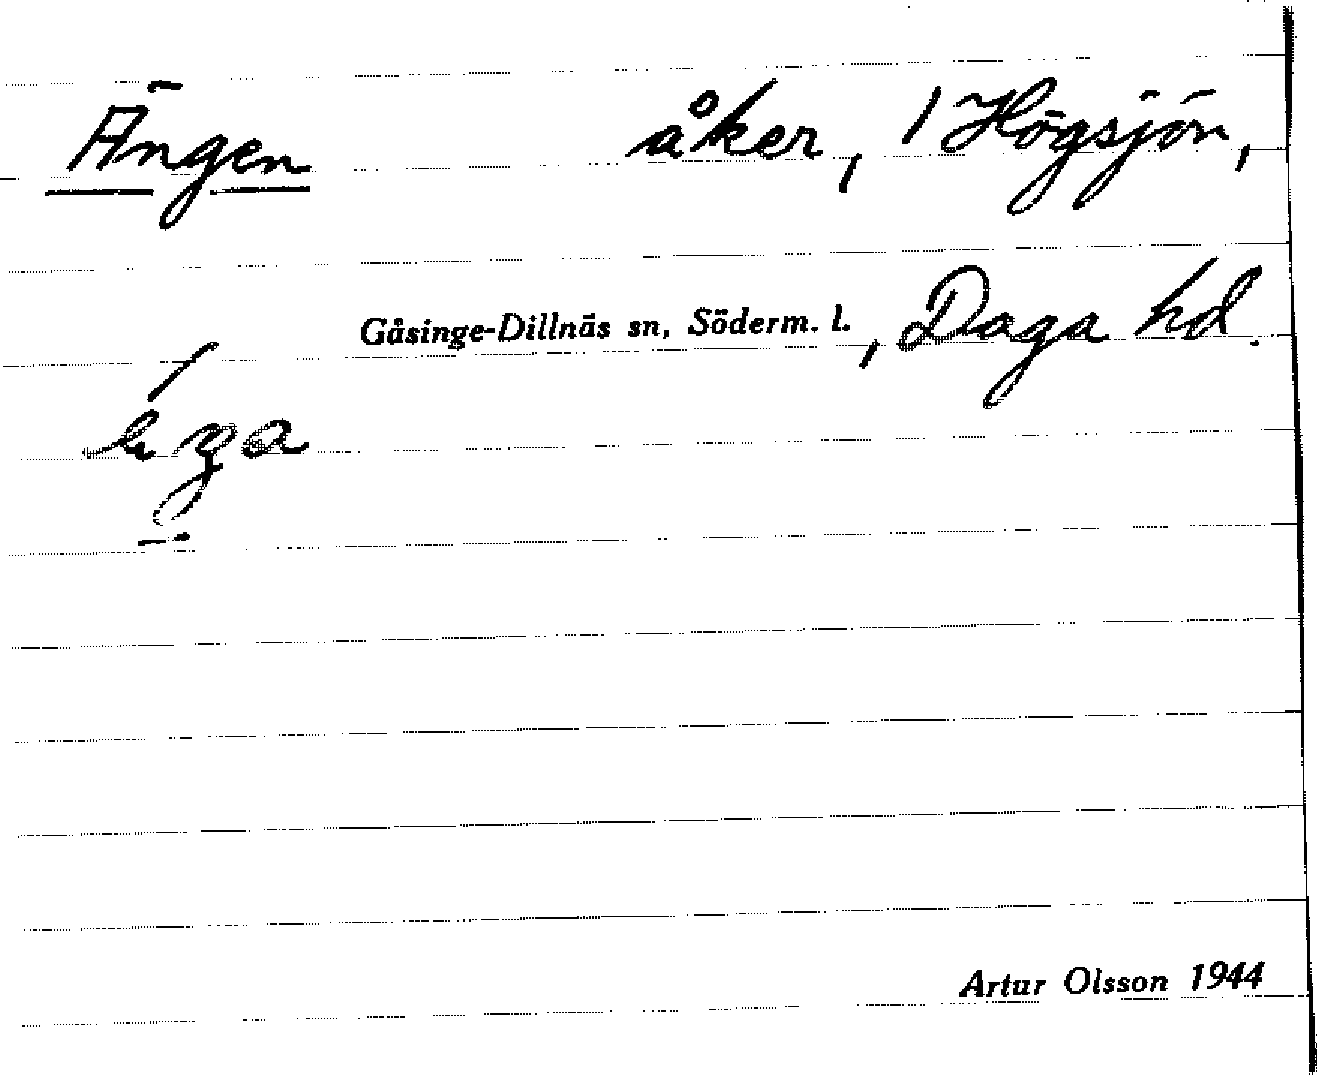 Ängen åker, 1 Högsjön,
Gåsinge-Dillnäs sn, Söderm. l., Daga hd.
Artur Olsson 1944